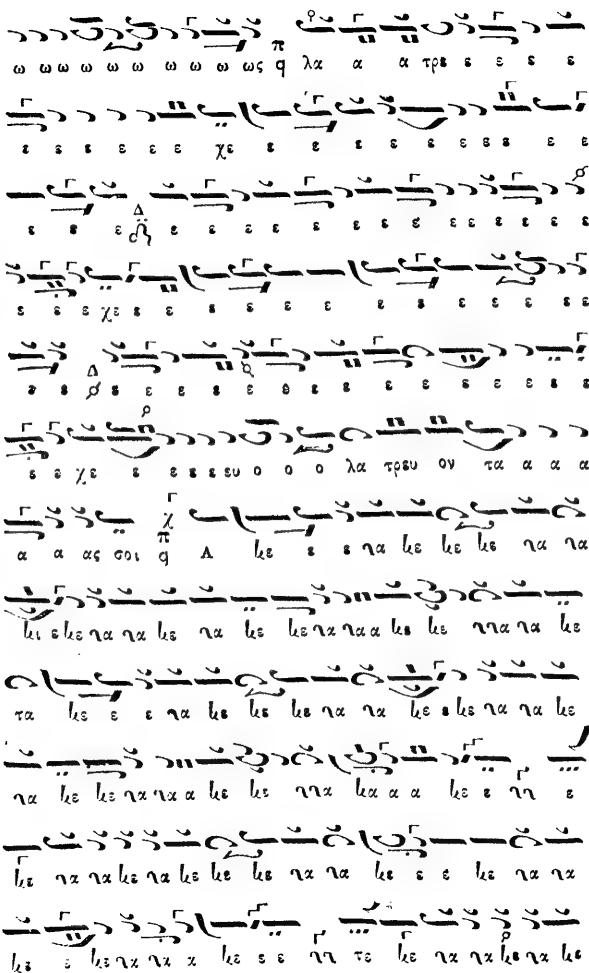 ω ω ω ω ω ω ω ω ω ως π q λα α α τρε ε ε ε ε
ε ε ε ε ε ε χε ε ε ε ε ε ε ε ε ε ε ε
ε ε ε Δ ε ε ε ε ε ε ε ε ε ε ε ε ε ε
ε ε ε χε ε ε ε ε ε ε ε ε ε ε ε ε ε
ε ε Δ ε ε ε ε ε ε ε ε ε ε ε ε ε ε
ε ε χε ε ε ε ε ευ ο ο ο λα τρευ ον τα α α α
α α ας σοι π q Λ κε ε ε να κε κε κε να να
κι ε κε να να κε να κε κε να να α κε κε ννα να κε
τα κε ε ε να κε κε κε να να κε ε κε να να κε
να κε κε να να α κε κε ννα κα α α κε ε νη ε
κε να να κε να κε κε κε να να κε ε ε κε να να
κε ε κε να να α κε ε ε νη τε κε να να κε να κε